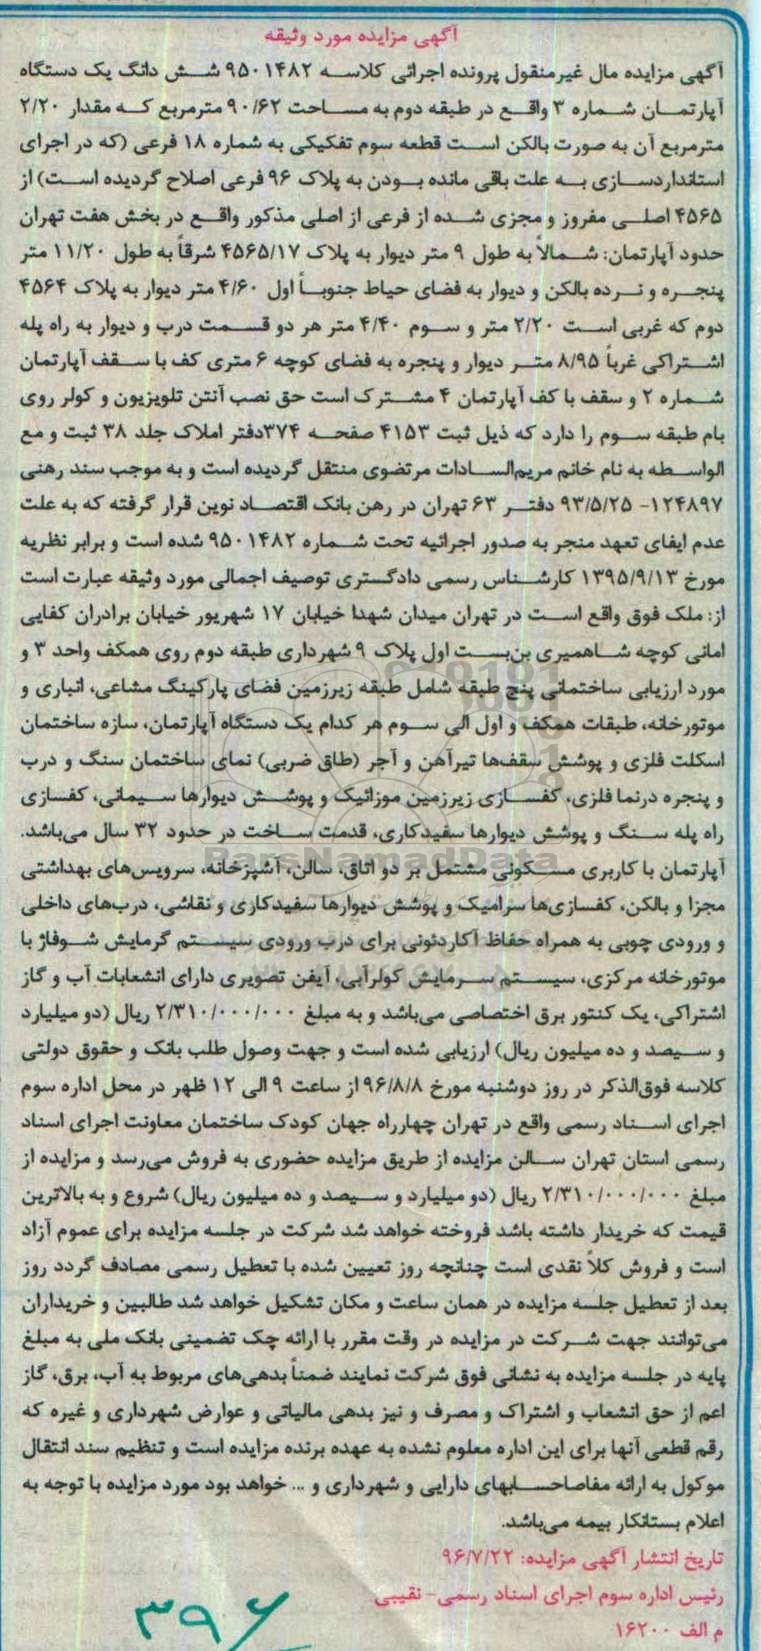 آگهی مزایده مورد وثیقه
آگهی مزایده مال غیرمنقول پرونده اجرائی کلاسه ۹۵۰۱۴۸۲ شش دانگ یک دستگاه
آپارتمان شماره ۳ واقع در طبقه دوم به مساحت ۹۰/۶۲ مترمربع که مقدار ۲/۲۰
مترمربع آن به صورت بالکن است قطعه سوم تفکیکی به شماره ۱۸ فرعی (که در اجرای
استانداردسازی به علت باقی مانده بودن به پلاک ۹۶ فرعی اصلاح گردیده است) از
۴۵۶۵ اصلی مفروز و مجزی شده از فرعی از اصلی مذکور واقع در بخش هفت تهران
حدود آپارتمان: شمالاً به طول ۹ متر دیوار به پلاک ۴۵۶۵/۱۷ شرقاً به طول ۱۱/۲۰ متر
پنجره و نرده بالکن و دیوار به فضای حیاط جنوباً اول ۴/۶۰ متر دیوار به پلاک ۴۵۶۴
دوم که غربی است ۲/۲۰ متر و سوم ۴/۴۰ متر هر دو قسمت درب و دیوار به راه پله
اشتراکی غرباً ۸/۹۵ متر دیوار و پنجره به فضای کوچه ۶ متری کف با سقف آپارتمان
شماره ۲ و سقف با کف آپارتمان ۴ مشترک است حق نصب آنتن تلویزیون و کولر روی
بام طبقه سوم را دارد که ذیل ثبت ۴۱۵۳ صفحه ۳۷۴دفتر املاک جلد ۳۸ ثبت و مع
الواسطه به نام خانم مریم‌السادات مرتضوی منتقل گردیده است و به موجب سند رهنی
۱۲۴۸۹۷- ۹۳/۵/۲۵ دفتر ۶۳ تهران در رهن بانک اقتصاد نوین قرار گرفته که به علت
عدم ایفای تعهد منجر به صدور اجرائیه تحت شماره ۹۵۰۱۴۸۲ شده است و برابر نظریه
مورخ ۱۳۹۵/۹/۱۳ کارشناس رسمی دادگستری توصیف اجمالی مورد وثیقه عبارت است
از: ملک فوق واقع است در تهران میدان شهدا خیابان ۱۷ شهریور خیابان برادران کفایی
امانی کوچه شاهمیری بن‌بست اول پلاک ۹ شهرداری طبقه دوم روی همکف واحد ۳ و
مورد ارزیابی ساختمانی پنج طبقه شامل طبقه زیرزمین فضای پارکینگ مشاعی، انباری و
موتورخانه، طبقات همکف و اول الی سوم هر کدام یک دستگاه آپارتمان، سازه ساختمان
اسکلت فلزی و پوشش سقف‌ها تیرآهن و آجر (طاق ضربی) نمای ساختمان سنگ و درب
و پنجره درنما فلزی، کفسازی زیرزمین موزائیک و پوشش دیوارها سیمانی، کفسازی
راه پله سنگ و پوشش دیوارها سفیدکاری، قدمت ساخت در حدود ۳۲ سال می‌باشد.
آپارتمان با کاربری مسکونی مشتمل بر دو اتاق، سالن، آشپزخانه، سرویس‌های بهداشتی
مجزا و بالکن، کفسازی‌ها سرامیک و پوشش دیوارها سفیدکاری و نقاشی، درب‌های داخلی
و ورودی چوبی به همراه حفاظ آکاردئونی برای درب ورودی سیستم گرمایش شوفاژ با
موتورخانه مرکزی، سیستم سرمایش کولرآبی، آیفن تصویری دارای انشعابات آب و گاز
اشتراکی، یک کنتور برق اختصاصی می‌باشد و به مبلغ ۲/۳۱۰/۰۰۰/۰۰۰ ریال (دو میلیارد
و سیصد و ده میلیون ریال) ارزیابی شده است و جهت وصول طلب بانک و حقوق دولتی
کلاسه فوق‌الذکر در روز دوشنبه مورخ ۹۶/۸/۸ از ساعت ۹ الی ۱۲ ظهر در محل اداره سوم
اجرای اسناد رسمی واقع در تهران چهارراه جهان کودک ساختمان معاونت اجرای اسناد
رسمی استان تهران سالن مزایده از طریق مزایده حضوری به فروش می‌رسد و مزایده از
مبلغ ۲/۳۱۰/۰۰۰/۰۰۰ ریال (دو میلیارد و سیصد و ده میلیون ریال) شروع و به بالاترین
قیمت که خریدار داشته باشد فروخته خواهد شد شرکت در جلسه مزایده برای عموم آزاد
است و فروش کلاً نقدی است چنانچه روز تعیین شده با تعطیل رسمی مصادف گردد روز
بعد از تعطیل جلسه مزایده در همان ساعت و مکان تشکیل خواهد شد طالبین و خریداران
می‌توانند جهت شرکت در مزایده در وقت مقرر با ارائه چک تضمینی بانک ملی به مبلغ
پایه در جلسه مزایده به نشانی فوق شرکت نمایند ضمناً بدهی‌های مربوط به آب، برق، گاز
اعم از حق انشعاب و اشتراک و مصرف و نیز بدهی مالیاتی و عوارض شهرداری و غیره که
رقم قطعی آنها برای این اداره معلوم نشده به عهده برنده مزایده است و تنظیم سند انتقال
موکول به ارائه مفاصاحسابهای دارایی و شهرداری و ... خواهد بود مورد مزایده با توجه به
اعلام بستانکار بیمه می‌باشد.
تاریخ انتشار آگهی مزایده: ۹۶/۷/۲۲
رئیس اداره سوم اجرای اسناد رسمی- نقیبی
م الف ۱۶۲۰۰
۳۹۶
ParsNamadData